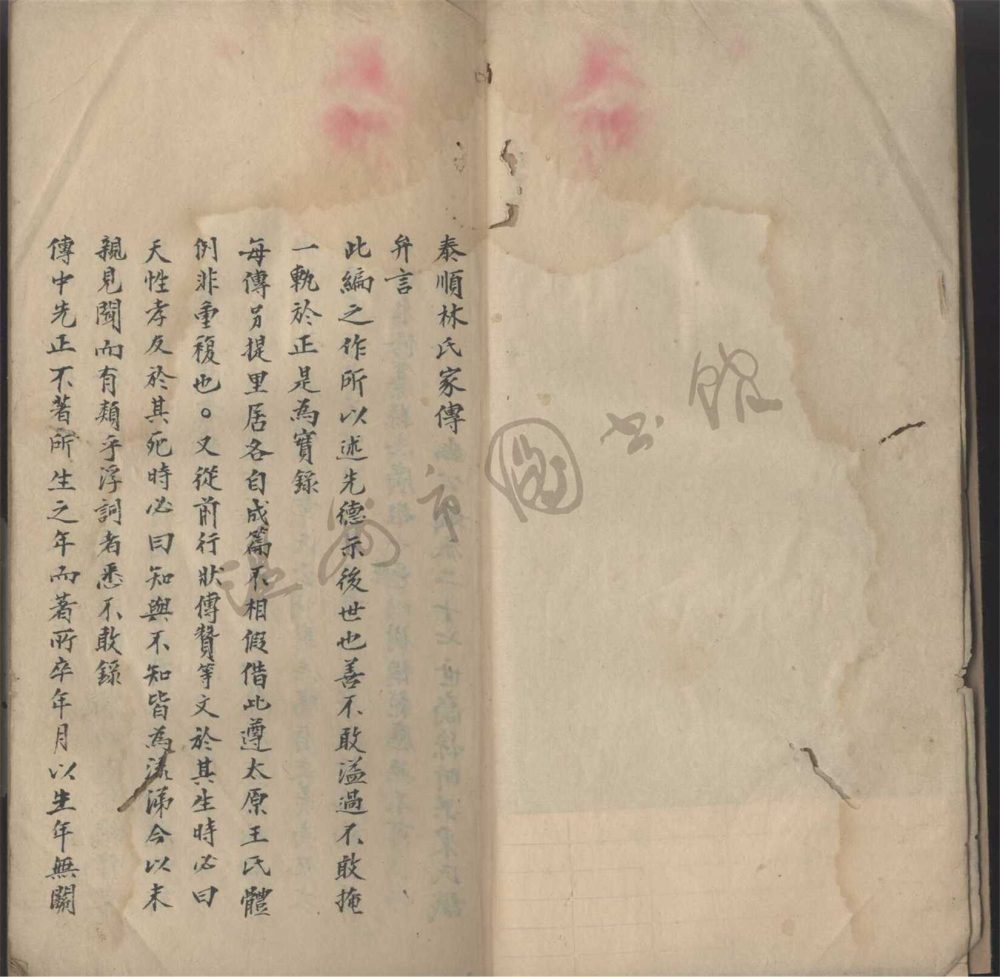 泰順林氏家傳
弁言
此編之作所以述先德示後世也善不敢溢過不敢掩
一軌於正是為實錄
每傳另提里居各自成篇不相假借此遵太原王氏體
例非重複也。又從前行狀傳贊等文於其生時必曰
天性孝友於其死時必曰知與不知皆為流涕今以未
親見聞而有類乎浮詞者悉不敢錄
傳中先正不著所生之年而著所卒年月以生年無關
溫州市圖書館